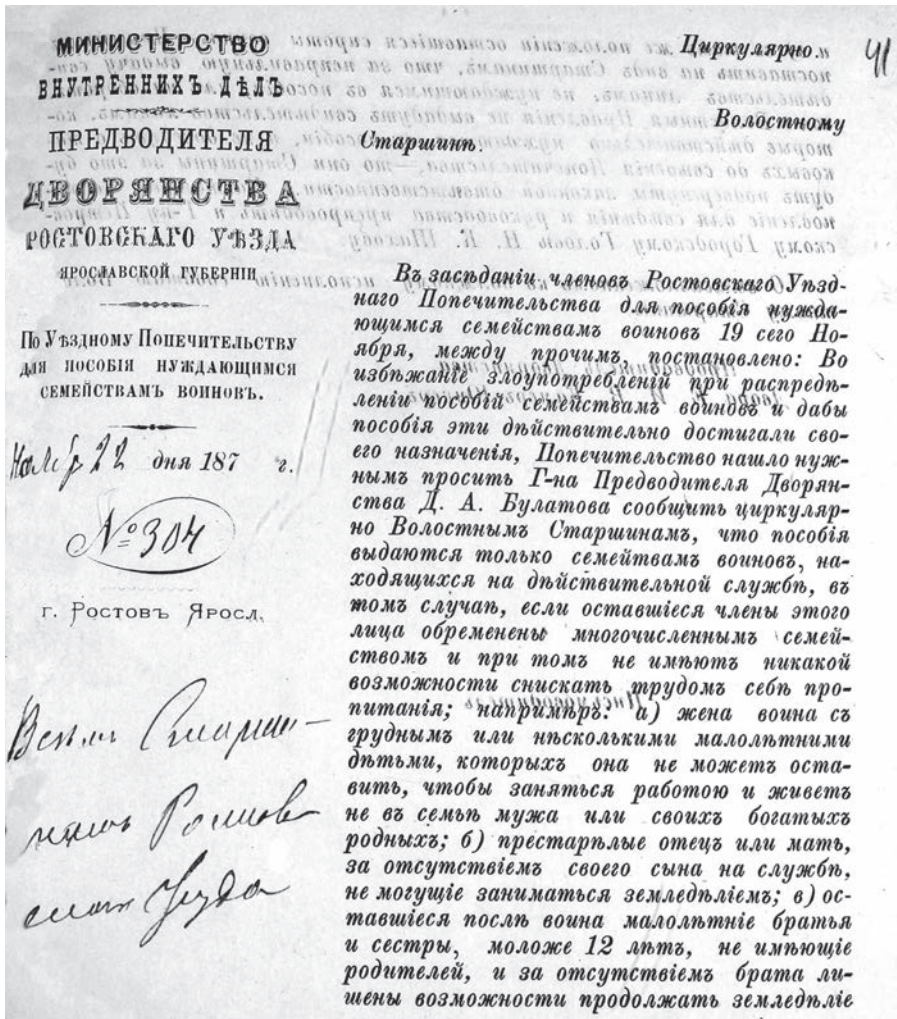 МИНИСТЕРСТВО
ВНУТРЕННИХЪ ДѢЛЪ
ПРЕДВОДИТЕЛЯ
ДВОРЯНСТВА
РОСТОВСКАГО УѢЗДА
ЯРОСЛАВСКОЙ ГУБЕРНІИ
По Уѣздному Попечительству
для пособія нуждающимся
семействамъ воиновъ.
Ноябр 22 дня 187 г.
№ 304
г. Ростовъ Яросл.
Всѣмъ Старши-
намъ Ростов
скаго Уѣзда
41
Циркулярно.
Волостному
Старшинѣ.
Въ засѣданіи членовъ Ростовскаго Уѣзд-
наго Попечительства для пособія нужда-
ющимся семействамъ воиновъ 19 сего Но-
ября, между прочимъ, постановлено: Во
избѣжаніе злоупотребленій при распредѣ-
леніи пособій семействамъ воиновъ и дабы
пособія эти дѣйствительно достигали сво-
его назначенія, Попечительство нашло нуж-
нымъ просить Г-на Предводителя Дворян-
ства Д. А. Булатова сообщить циркуляр-
но Волостнымъ Старшинамъ, что пособія
выдаются только семейтвамъ воиновъ, на-
ходящихся на дѣйствительной службѣ, въ
томъ случаѣ, если оставшіеся члены этого
лица обременены многочисленнымъ семей-
ствомъ и при томъ не имѣютъ никакой
возможности снискать трудомъ себѣ про-
питанія; напримѣръ: а) жена воина съ
груднымъ или нѣсколькими малолѣтними
дѣтьми, которыхъ она не можетъ оста-
вить, чтобы заняться работою и живетъ
не въ семьѣ мужа или своихъ богатыхъ
родныхъ; б) престарѣлые отецъ или мать,
за отсутствіемъ своего сына на службѣ,
не могущіе заниматься земледѣліемъ; в) ос-
тавшіеся послѣ воина малолѣтніе братья
и сестры, моложе 12 лѣтъ, не имѣющіе
родителей, и за отсутствіемъ брата ли-
шены возможности продолжать земледѣліе